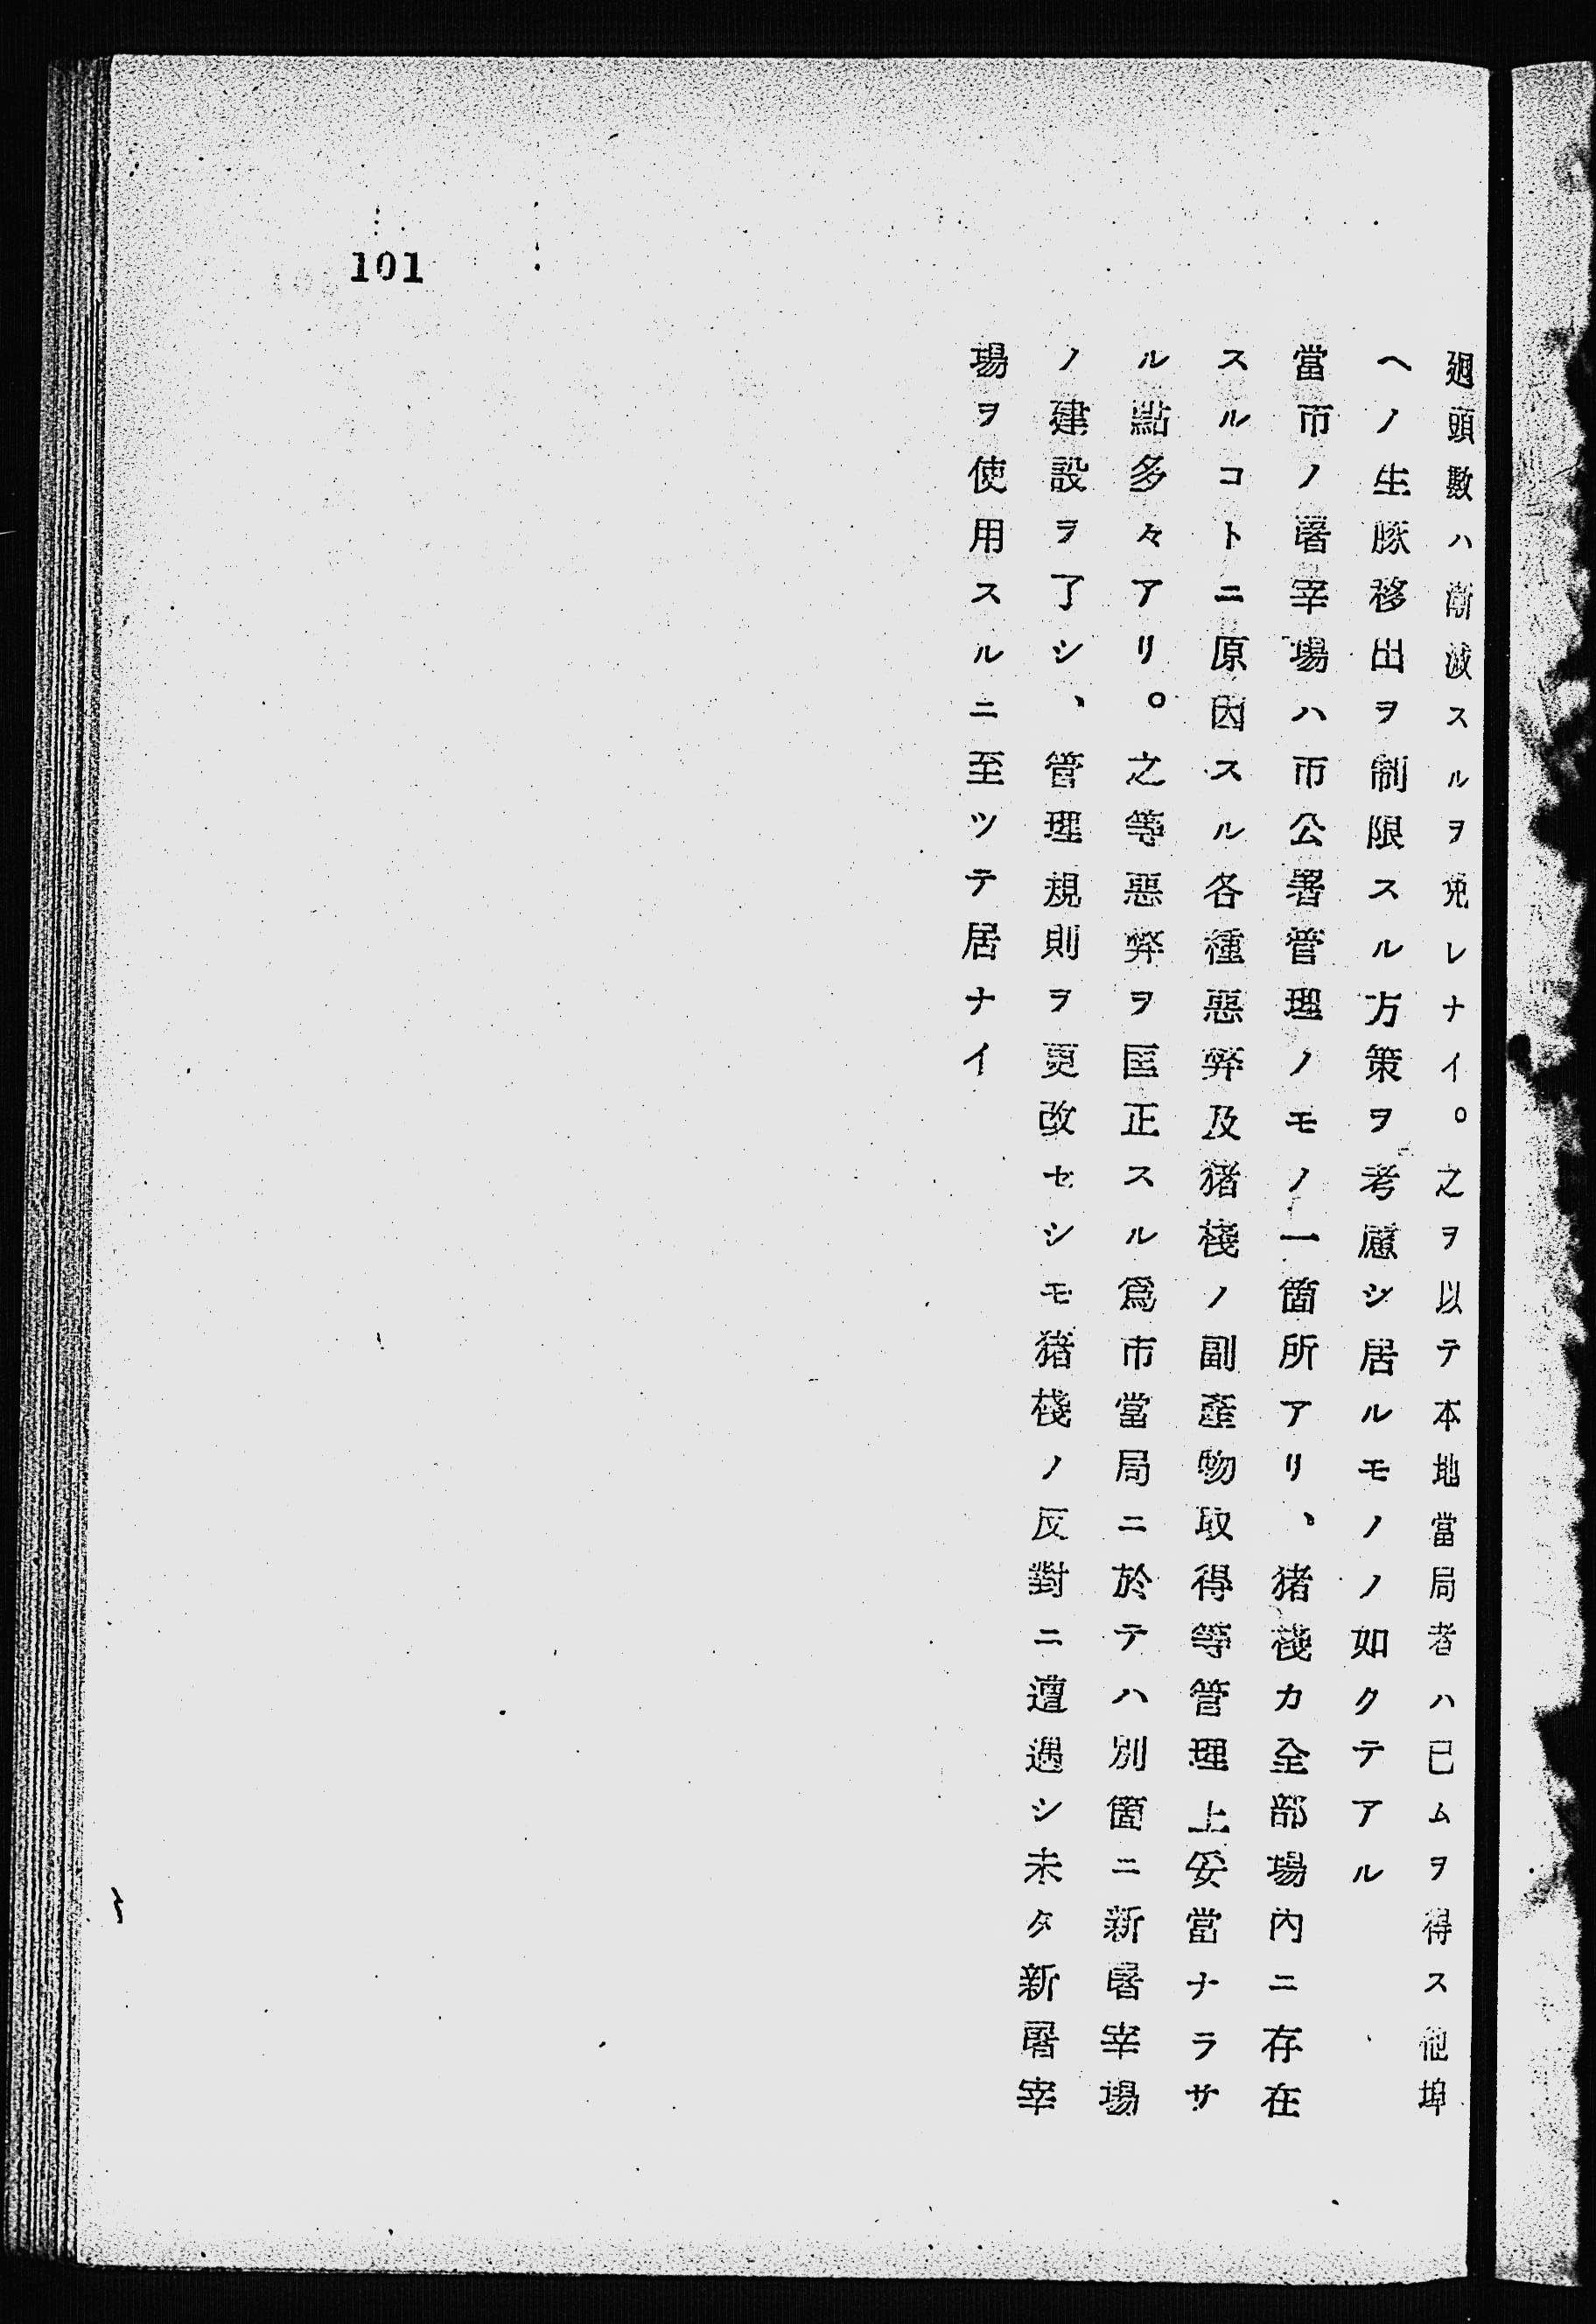 101
廻頭數ハ漸減スルヲ免レナイ。之ヲ以テ本地當局者ハ已ムヲ得ス他埠
ヘノ生豚移出ヲ制限スル方策ヲ考慮シ居ルモノノ如クテアル
當市ノ屠宰場ハ市公署管理ノモノ一箇所アリ、猪棧カ全部場內ニ存在
スルコトニ原因スル各種惡弊及猪棧ノ副產物取得等管理上妥當ナラサ
ル點多々アリ。之等惡弊ヲ匡正スル爲市當局ニ於テハ別箇ニ新屠宰場
ノ建設ヲ了シ、管理規則ヲ更改セシモ猪棧ノ反對ニ遭遇シ未タ新屠宰
場ヲ使用スルニ至ツテ居ナイ